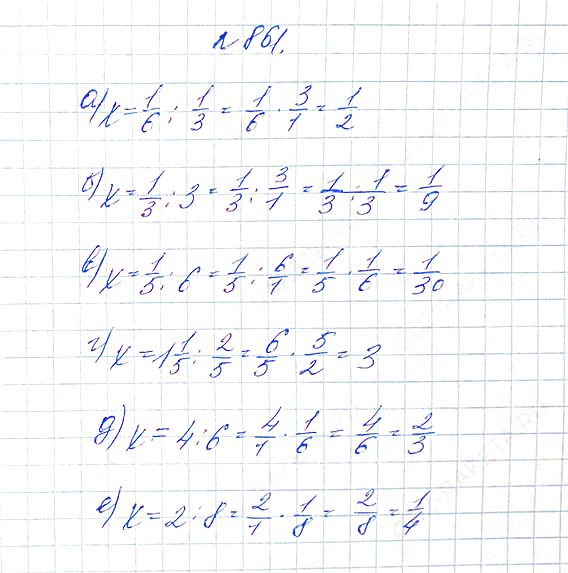 № 861.
а) x = 1/6 : 1/3 = 1/6 · 3/1 = 1/2
б) x = 1/3 : 3 = 1/3 : 3/1 = 1/3 · 1/3 = 1/9
в) x = 1/5 : 6 = 1/5 : 6/1 = 1/5 · 1/6 = 1/30
г) x = 1 1/5 : 2/5 = 6/5 · 5/2 = 3
д) x = 4 : 6 = 4/1 · 1/6 = 4/6 = 2/3
е) x = 2 : 8 = 2/1 · 1/8 = 2/8 = 1/4